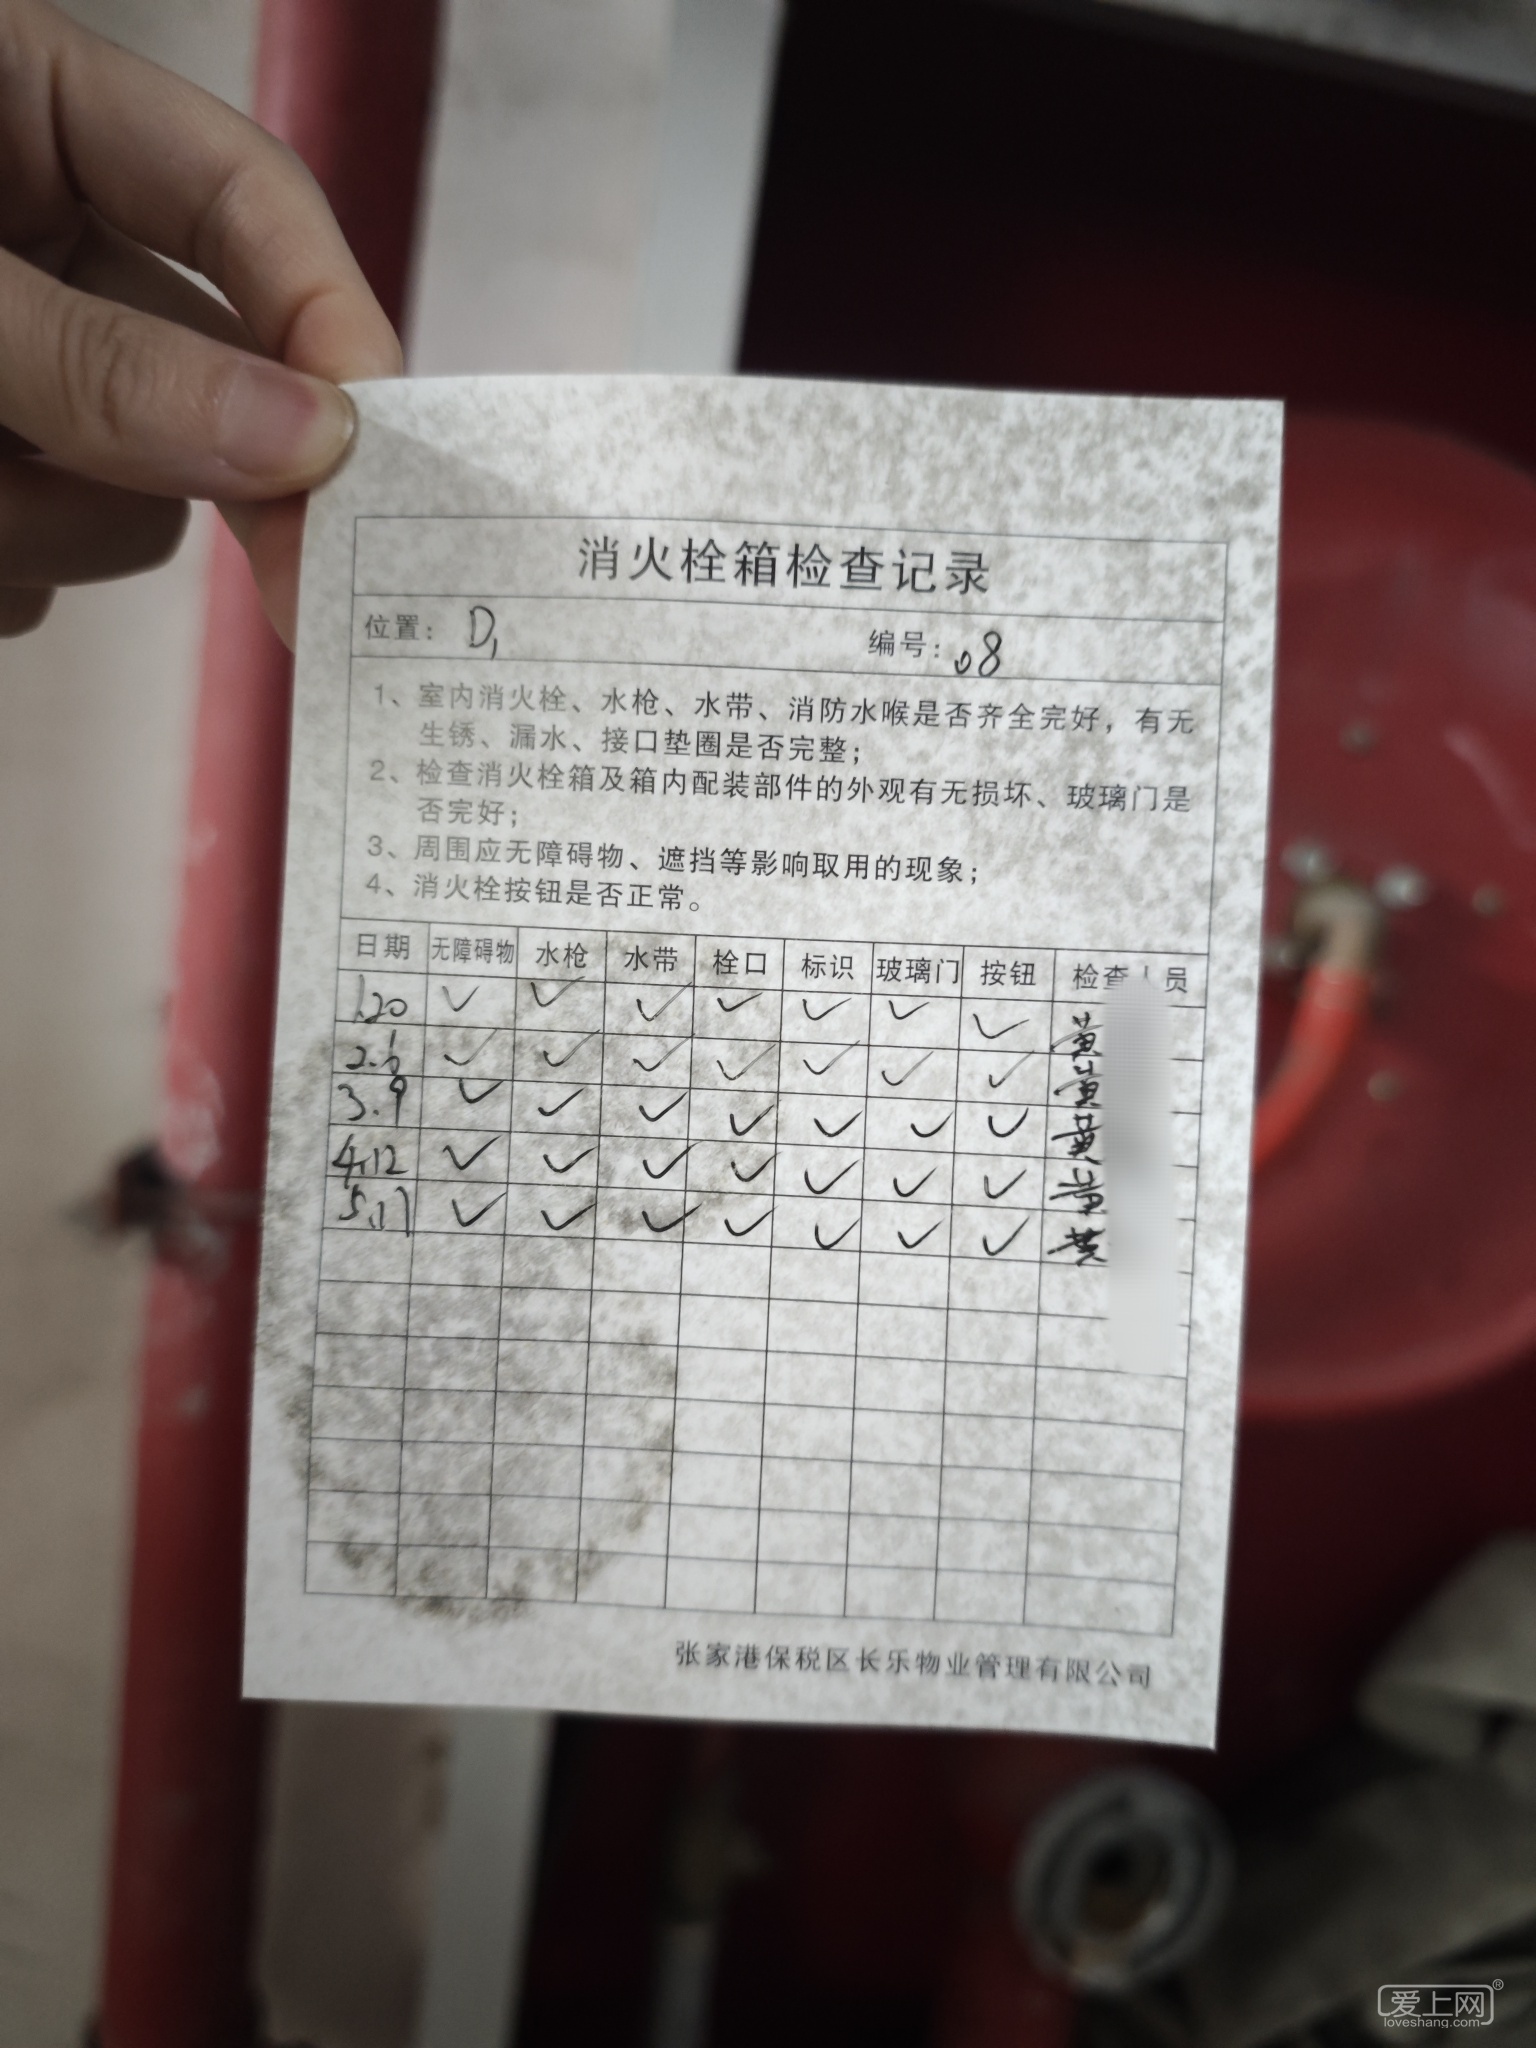 消火栓箱检查记录
位置： D1 编号：08
1、室内消火栓、水枪、水带、消防水喉是否齐全完好，有无
生锈、漏水、接口垫圈是否完整；
2、检查消火栓箱及箱内配装部件的外观有无损坏、玻璃门是
否完好；
3、周围应无障碍物、遮挡等影响取用的现象；
4、消火栓按钮是否正常。
日期 无障碍物 水枪 水带 栓口 标识 玻璃门 按钮 检查人员
1.20 ✓ ✓ ✓ ✓ ✓ ✓ ✓ 黄
2.6 ✓ ✓ ✓ ✓ ✓ ✓ ✓ 黄
3.9 ✓ ✓ ✓ ✓ ✓ ✓ ✓ 黄
4.12 ✓ ✓ ✓ ✓ ✓ ✓ ✓ 黄
5.17 ✓ ✓ ✓ ✓ ✓ ✓ ✓ 黄
张家港保税区长乐物业管理有限公司
爱上网®
loveshang.com